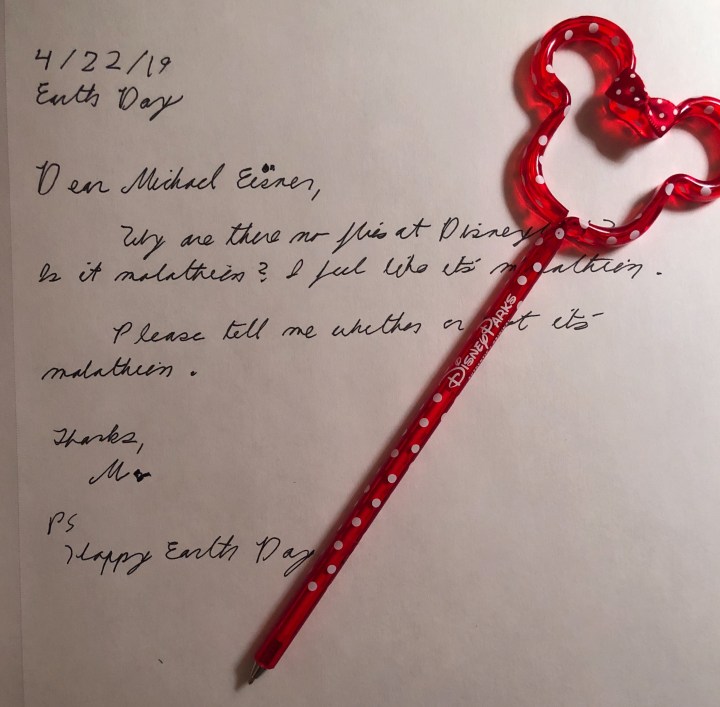 4/22/19
Earth Day
Dear Michael Eisner,
Why are there no flies at Disneyl
Is it malathion? I feel like its malathion.
Please tell me whether or not its
malathion.
Thanks,
M
PS
Happy Earth Day
DISNEY PARKS